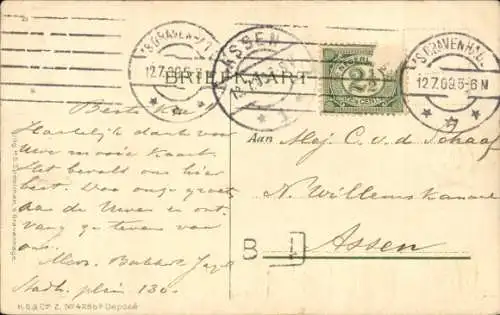 'S GRAVENHAGE
12.7.09.5-6N
ASSEN
NEDERLAND
2½
CENT
'S GRAVENHAGE
12.7.09.5-6N
BRIEFKAART
Beste
Hartelijk dank voor
Uwe mooie kaart.
Het bevalt ons hier
best. Van onze groeten
aan de Uwen en ont-
vang ze tevens van
ons.
Mevr. Bakker
plein 130.
Aan Mej. C. v. d. Schaaf
N. Willemskanaal
Assen
B
H.S.& Co Z. No 4286 Deposé